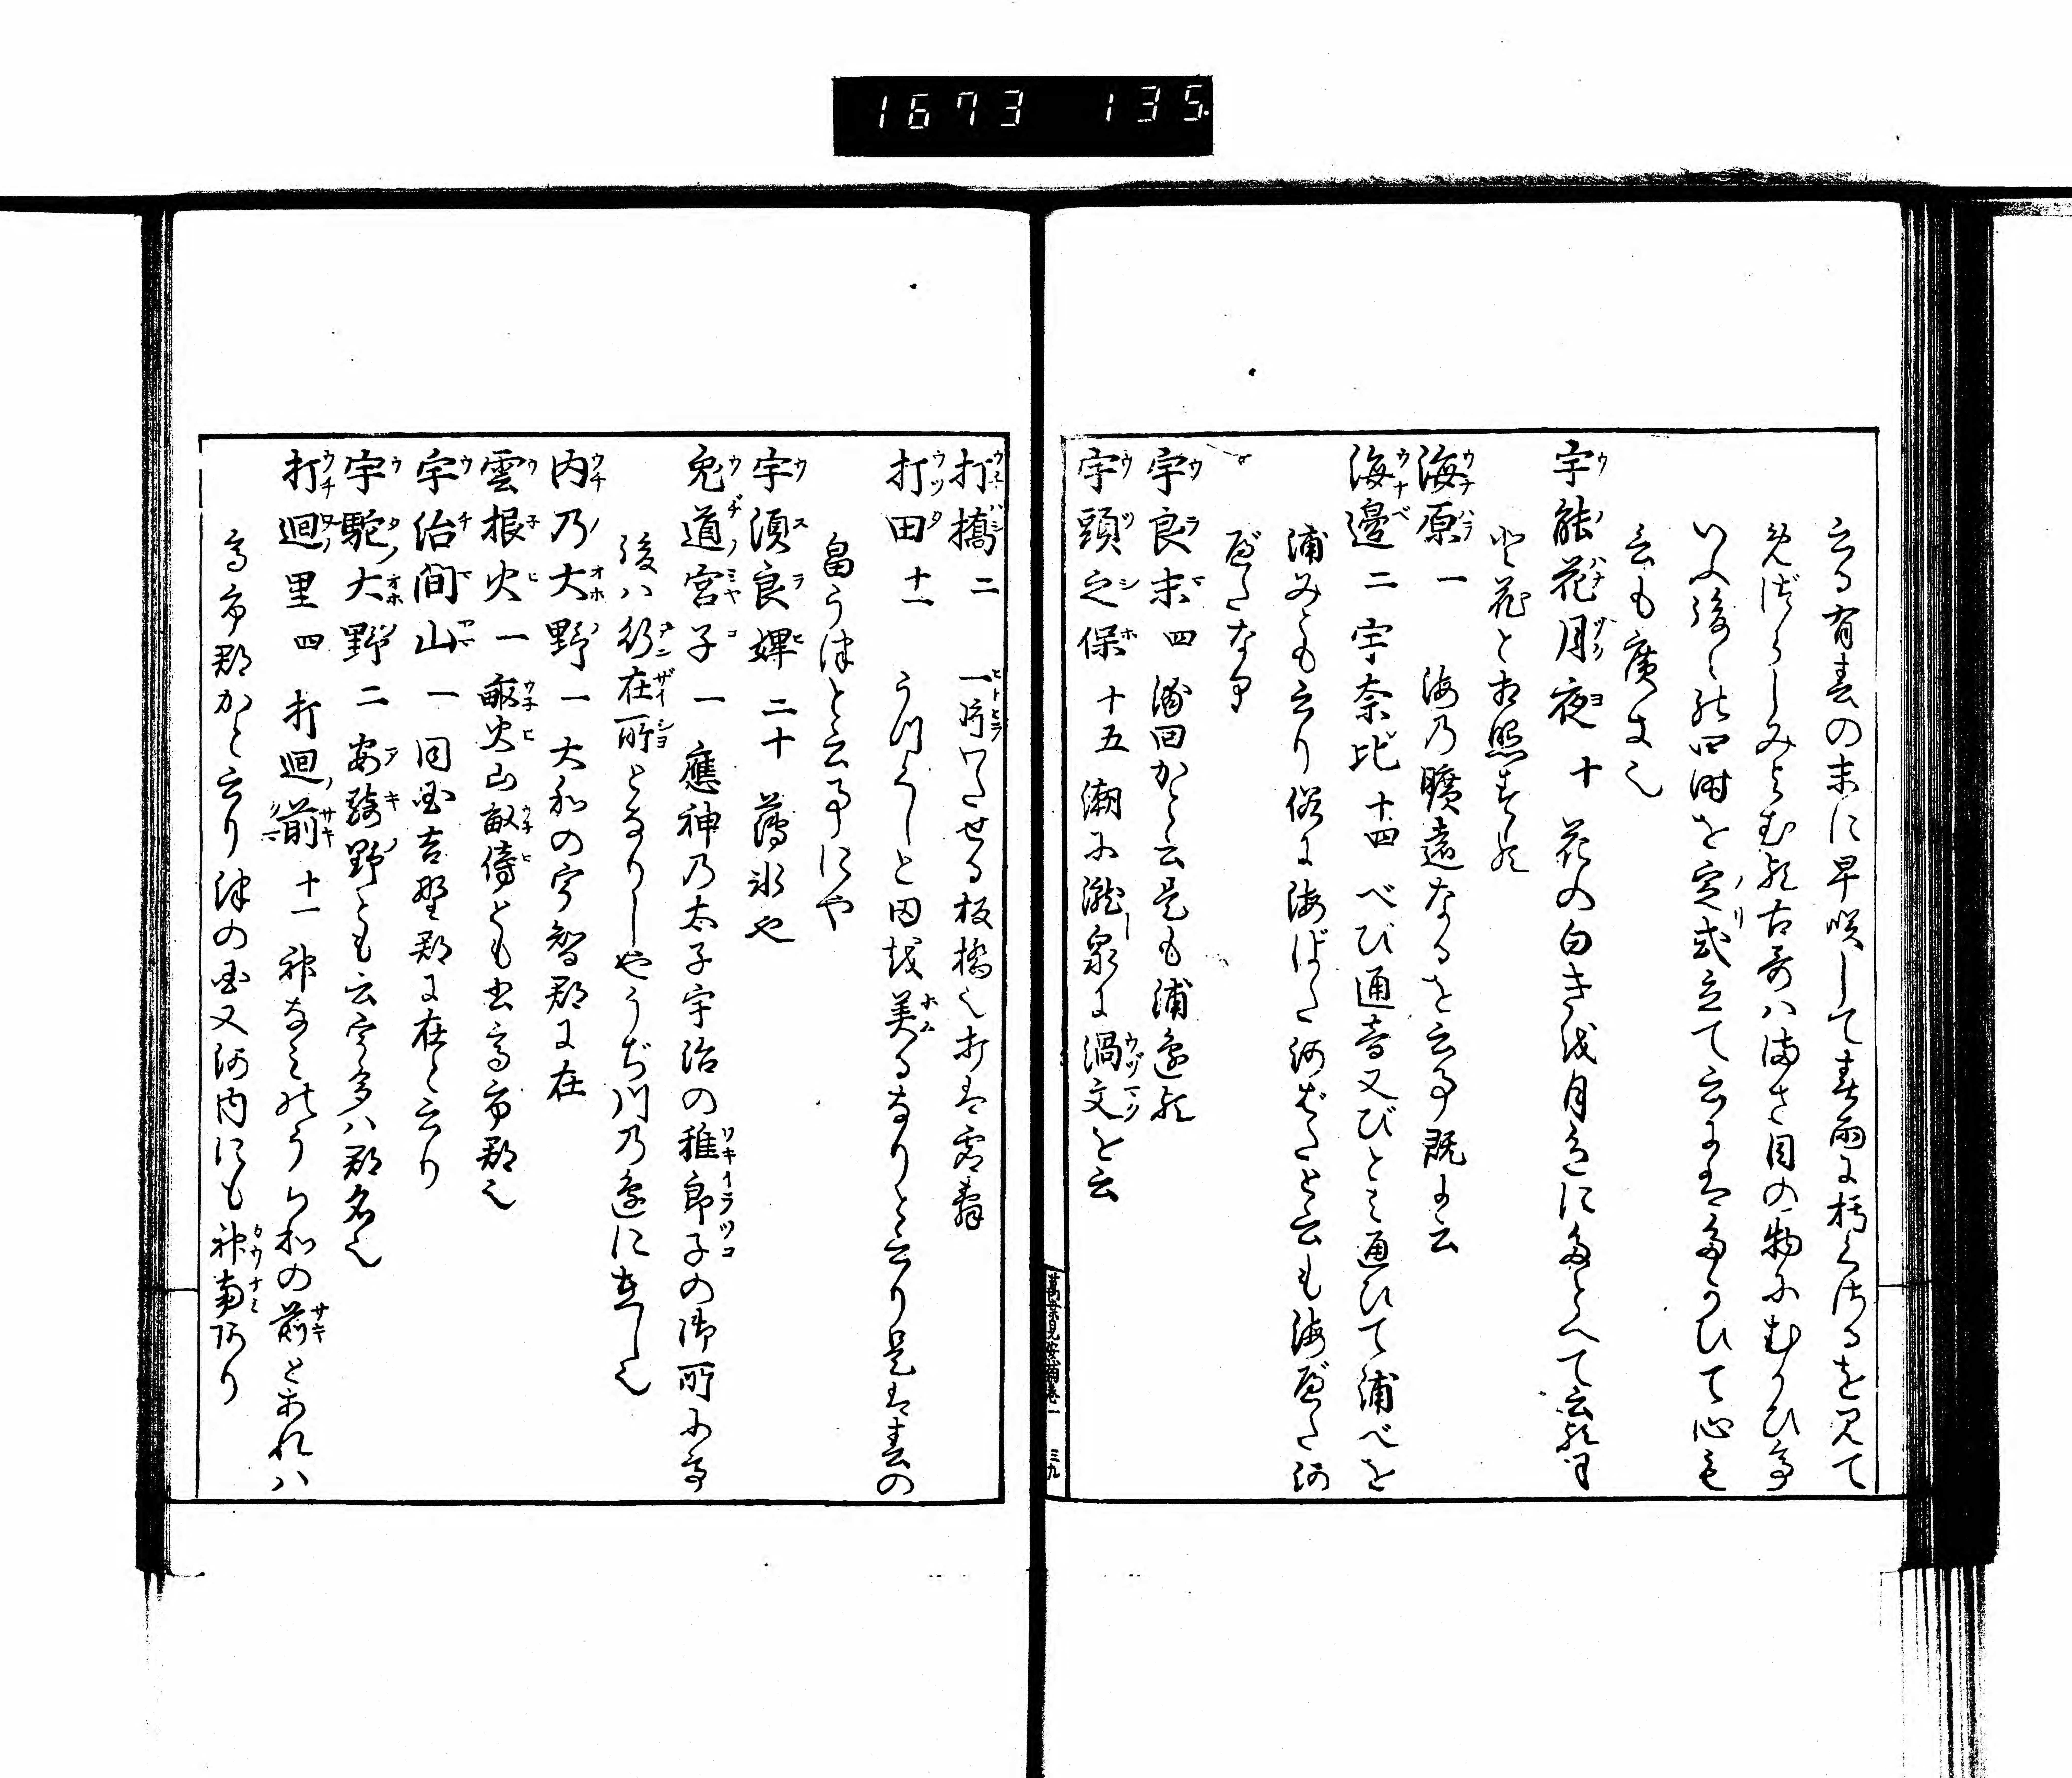 1673 135.
云る有春の末に早咲して春雨に朽くたるを見て
めづらしみよむ歌古哥ハまさ目の物にむかひ
いふ後々 四時を定式立て云にはたがひて心も
言も廣き也
宇能花月夜 十 花の白きを月色にたとへて云歌
花と相照
海原 一 海乃曠遠なるを云事既に云
海邊 二 宇奈比 十四 べび通音又びとミ通ひて浦べを
浦みとも云り俗に海ばた河ばたと云も海べた河
べたなり
宇良末 四 浦回かと云是も浦邊
宇頭之保 十五 潮に瀧泉に渦文を云
萬葉見安補巻一 三九
打橋 二 一片わたせる板橋也打は
打田 十一 うつくしと田を美るなりと云り是は春の
畠うつと云事にや
宇須良婢 二十 薄氷や
兎道宮子 一 應神乃太子宇治の稚郎子の御所にて
後ハ行在所となりしやうぢ川乃邊に在し也
内乃大野 一 大和の宇智郡に在
雲根火 一 畝火山畝傍とも書高市郡也
宇治間山 一 同国吉野郡に在と云り
宇駝大野 二 安騎野とも云宇多ハ郡名也
打廻里 四 打廻前 十一 神なミのうち和の前とあれハ
高市郡かと云り津の国又河内にも神南河り